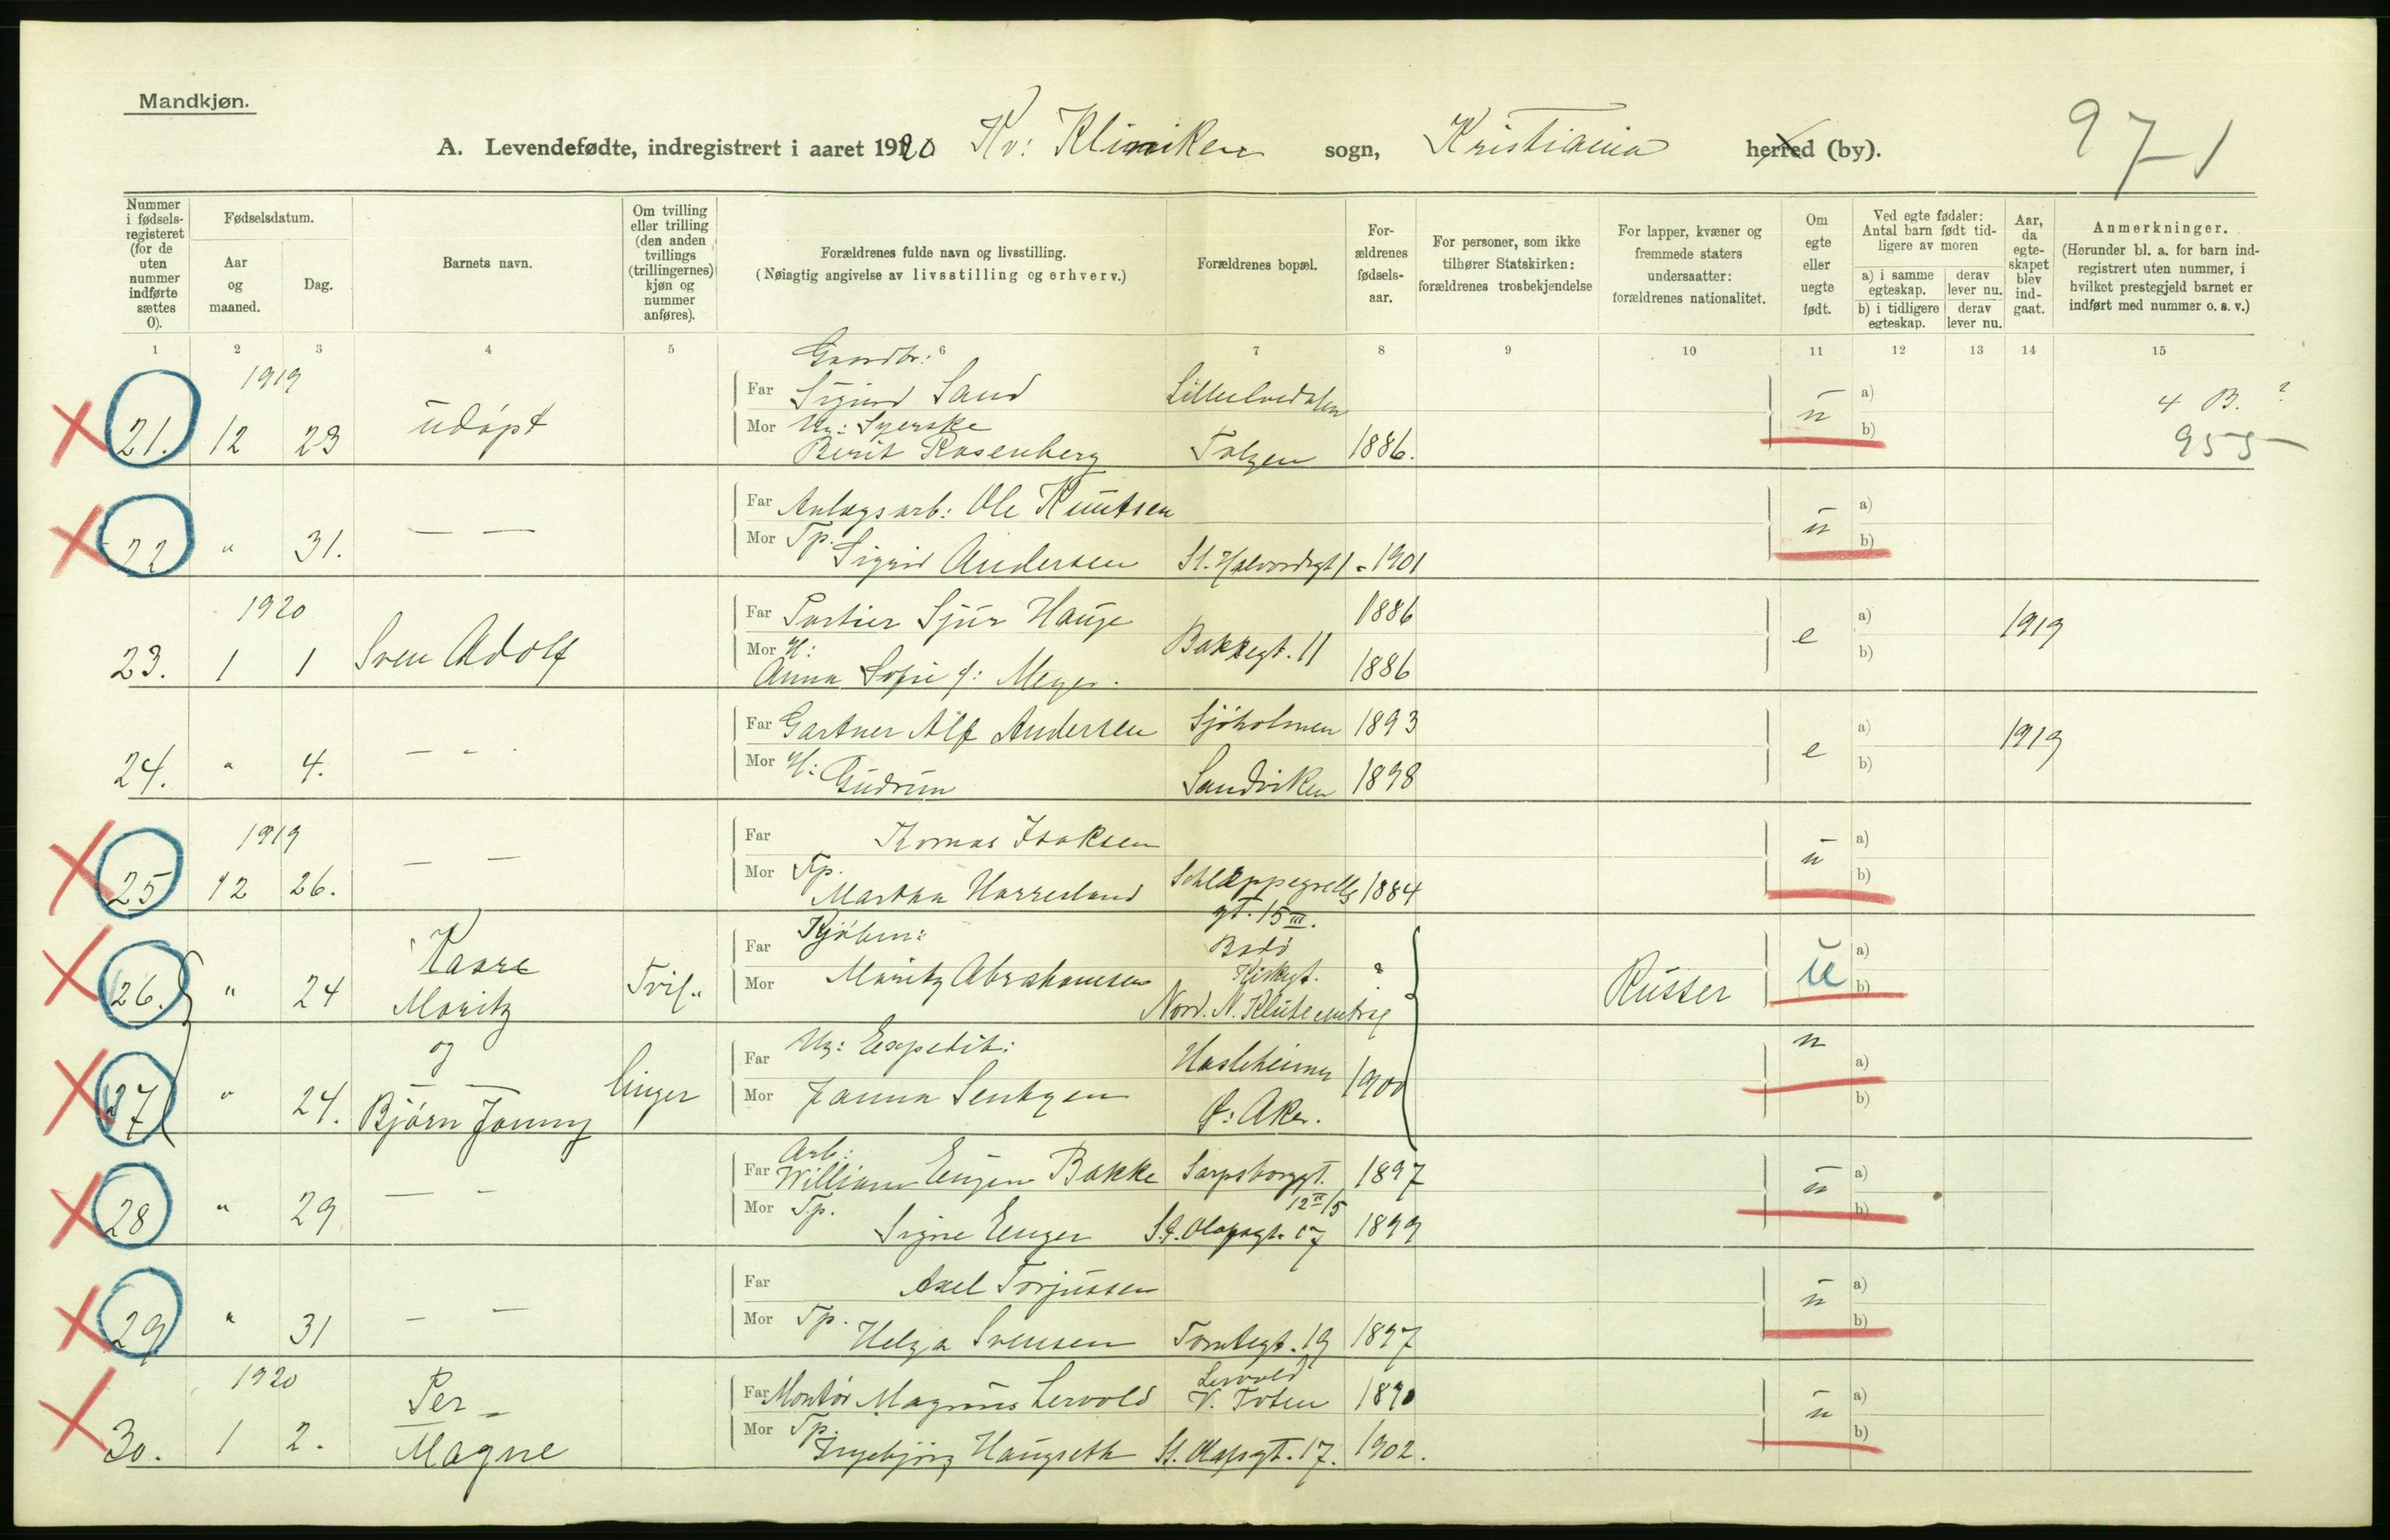 Mandkjøn.
A. Levendefødte, indregistrert i aaret 1920 Kv: Kliniken sogn, Kristiania herred (by).
971
Nummer i fødsels-registeret (for de uten nummer indførte sættes 0).
Fødselsdatum.
Aar og maaned.
Dag.
Barnets navn.
Om tvilling eller trilling (den anden tvillings (trillingernes) kjøn og nummer anføres).
Forældrenes fulde navn og livsstilling.
(Nøiagtig angivelse av livsstilling og erhverv.)
Forældrenes bopæl.
For-ældrenes fødsels-aar.
For personer, som ikke tilhører Statskirken: forældrenes trosbekjendelse
For lapper, kvæner og fremmede staters undersaatter: forældrenes nationalitet.
Om egte eller uegte født.
Ved egte fødsler: Antal barn født tid-ligere av moren
a) i samme egteskap.
derav lever nu.
b) i tidligere egteskap.
derav lever nu.
Aar, da egte-skapet blev ind-gaat.
Anmerkninger.
(Herunder bl. a. for barn ind-registrert uten nummer, i hvilket prestegjeld barnet er indført med nummer o. s. v.)
1 2 3 4 5 6 7 8 9 10 11 12 13 14 15
1919
Gaardbr:
Far Sigurd Sand Lilleelvedalen a) 4 B. ?
21. 12 23 udöpt u
Mor Ug: Syerske b)
Berit Rosenberg Tolgen 1886. 955
Far Anlægsarb: Ole Knutsen a)
22 " 31. — — u
Mor Tp. b)
Sigrid Andersen St. Halvordsgt 1 - 1901
1920
Far Portier Sjur Hauge 1886 a)
23. 1 1 Sven Adolf Bakkegt. 11 e 1919
Mor H: b)
Anna Sofie f: Meyer. 1886
Far Gartner Alf Andersen Sjöholmen 1893 a)
24. " 4. — - - e 1919
Mor H: b)
Gudrun Sandviken 1898
1919
Far Tomas Isaksen a)
25 12 26. — — u
Mor Tp. b)
Martha Harresland Schleppegrells 1884
gt. 15 III.
Kjöbm:
Far Bodö a)
26. " 24 Kaare Moritz Tvil- Russer u
Mor Moritz Abrahamsen Kirkegt. ? b)
Nord.
og
Ug: Expedit:
Far Hasleheimen u a)
27 " 24. Björn Jonny linger 1900
Mor Janna Sentzen b)
Ø: Aker.
Arb:
Far William Eugen Bakke Sarpsborggt. 1897 a)
12 II/5
28 " 29 — - u
Mor Tp. b)
Signe Enger St. Olafsgt. 17 1899
Far Axel Torjussen a)
29 " 31 - — u
Mor Tp. b)
Helga Svensen Tomtegt. 19 1897
1920
Lervold
Far Montör Magnus Lervold V. Toten 1890 a)
30. 1 2. Per - Magne u
Mor Tp. b)
Ingebjörg Haugseth St. Olafsgt. 17. 1902.